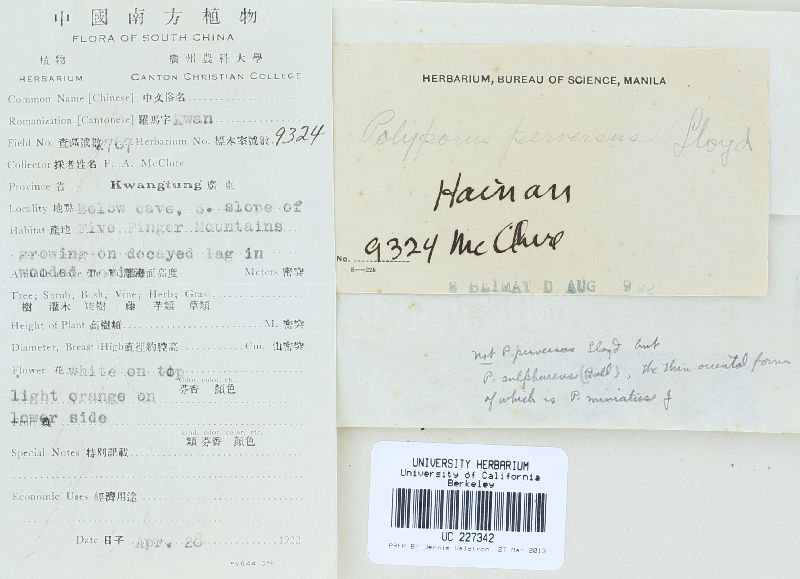 中國南方植物
FLORA OF SOUTH CHINA
植物 廣州農科大學
HERBARIUM CANTON CHRISTIAN COLLEGE
Common Name [Chinese] 中文俗名
Romanization [Cantonese] 羅馬字 Kwan
Field No. 4767 Herbarium No. 標本室號數 9324
Collector 採者姓名 F. A. McClure
Province 省 Kwangtung 廣東
Locality 地點 Below cave, S. slope of
Habitat 產地 Five Finger Mountains
growing on decayed log in
wooded Meters
Tree; Shrub; Bush; Vine; Herb; Grass
樹 灌木 矮樹 藤 草類
Height of Plant 高樹類 M.
Diameter, Breast High Cm.
Flower 花 white on top
Color, odor, etc.
芬香 顏色
light orange on
lower side
kind, color, odor, etc.
類 芬香 顏色
Special Notes 特別記載
Economic Uses 經濟用途
Date 日子 Apr. 28 1922
HERBARIUM, BUREAU OF SCIENCE, MANILA
Polyporus perversus Lloyd
Hainan
No. 9324 McClure
AUG
not P. perversus Lloyd but
P. sulphureus (Bull), the thin oriental form
of which is P. miniatus J
UNIVERSITY HERBARIUM
University of California
Berkeley
UC 227342
PREP BY Jennie Wahlstrom, 27 Mar 2013